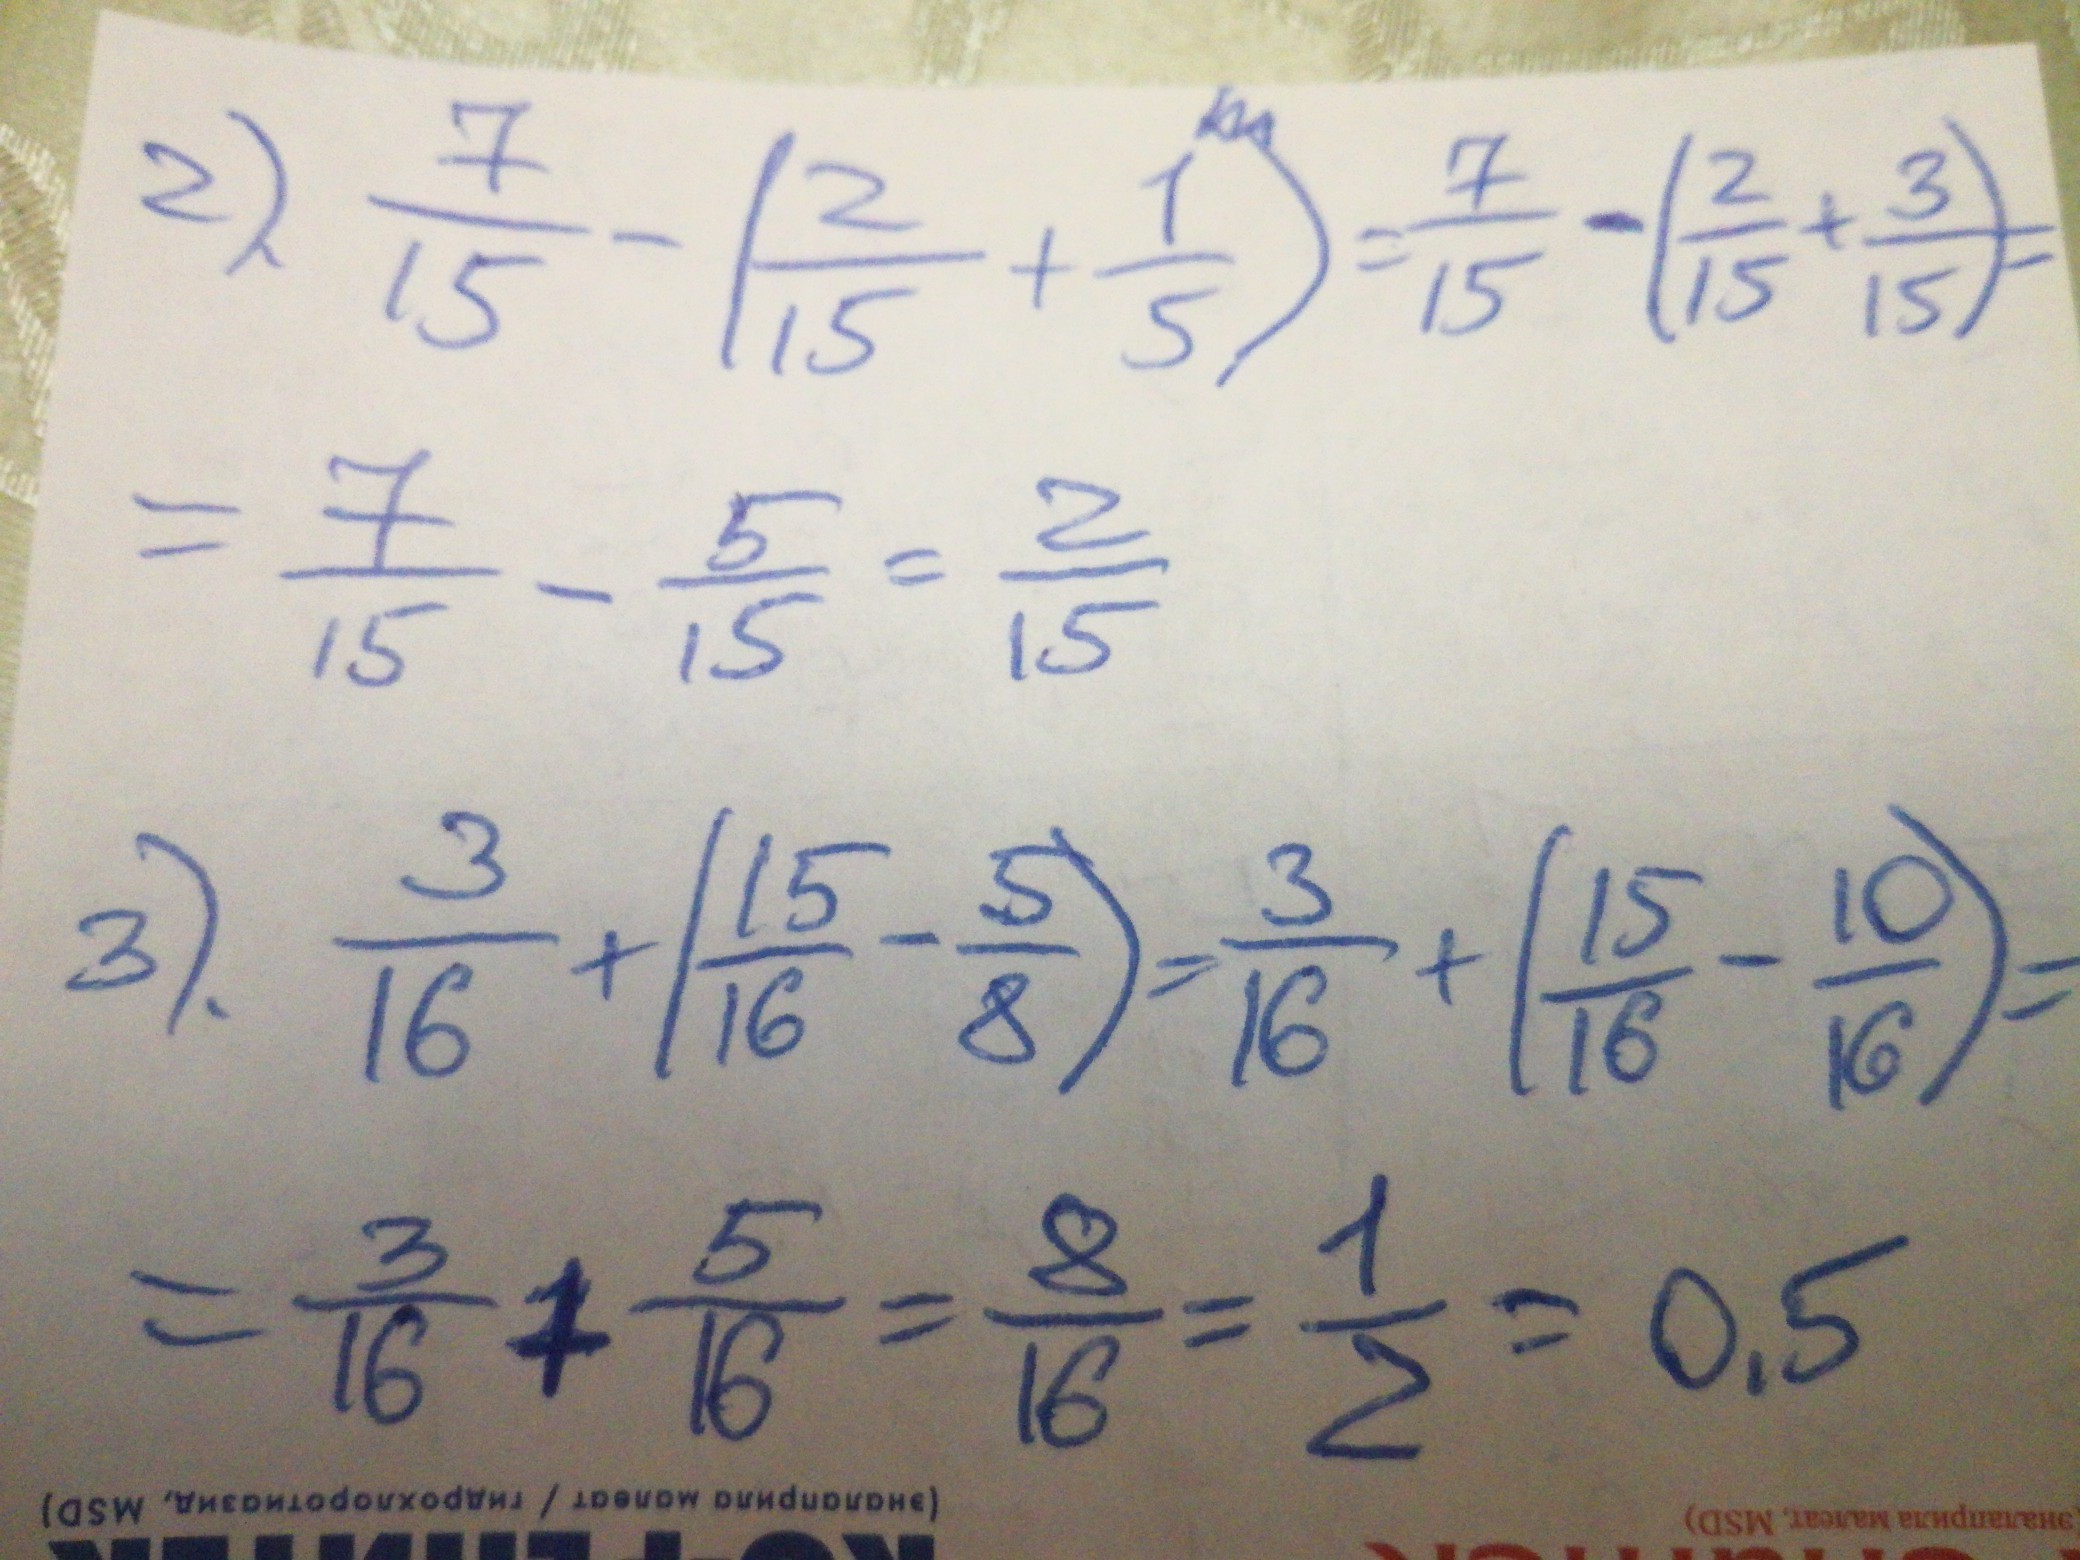 2) 7/15 - (2/15 + 1/5) = 7/15 - (2/15 + 3/15) =
= 7/15 - 5/15 = 2/15
3). 3/16 + (15/16 - 5/8) = 3/16 + (15/16 - 10/16) =
= 3/16 + 5/16 = 8/16 = 1/2 = 0,5
(эналаприла малеат / гидрохлоротиазид, MSD)
КО-РЕНИТЕК
(эналаприла малеат, MSD)
РЕНИТЕК